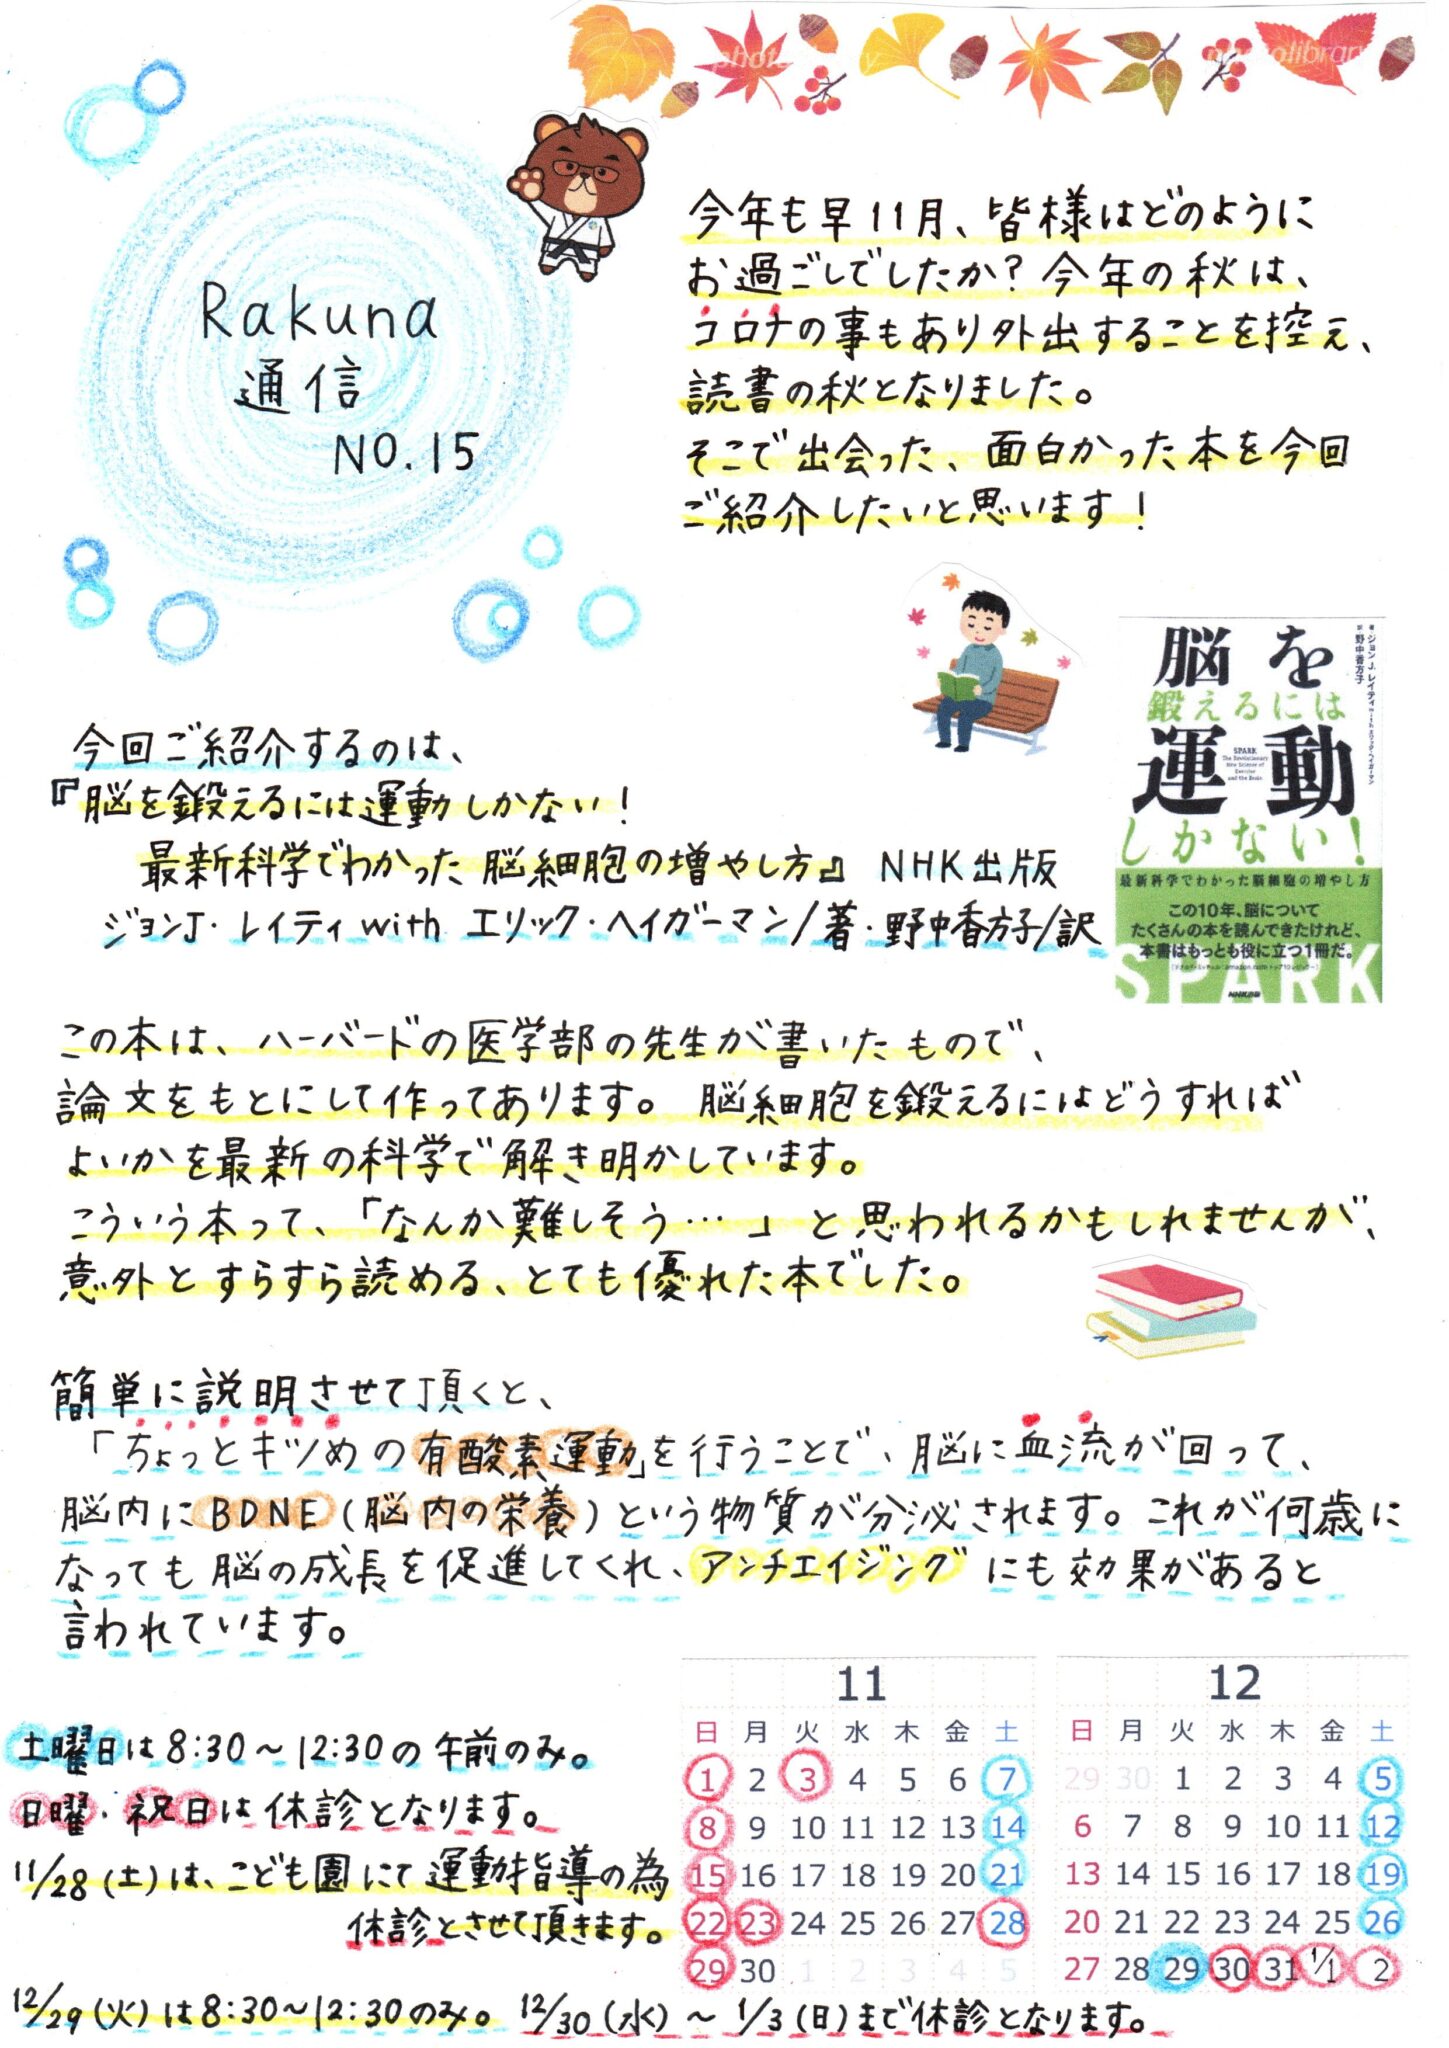 Rakuna
通信
NO.15
今年も早11月、皆様はどのように
お過ごしでしたか？今年の秋は、
コロナの事もあり外出することを控え、
読書の秋となりました。
そこで出会った、面白かった本を今回
ご紹介したいと思います！
脳を
鍛えるには
運動
しかない！
著 ジョン J. レイティ with エリック・ヘイガーマン
訳 野中香方子
SPARK
The Revolutionary
New Science of
Exercise
and the Brain
最新科学でわかった脳細胞の増やし方
この10年、脳について
たくさんの本を読んできたけれど、
本書はもっとも役に立つ1冊だ。
SPARK
NHK出版
今回ご紹介するのは、
『脳を鍛えるには運動しかない！
最新科学でわかった脳細胞の増やし方』 NHK出版
ジョンJ・レイティ with エリック・ヘイガーマン/著・野中香方子/訳
この本は、ハーバードの医学部の先生が書いたもので、
論文をもとにして作ってあります。脳細胞を鍛えるにはどうすれば
よいかを最新の科学で解き明かしています。
こういう本って、「なんか難しそう…」と思われるかもしれませんが、
意外とすらすら読める、とても優れた本でした。
簡単に説明させて頂くと、
「ちょっとキツめの有酸素運動」を行うことで、脳に血流が回って、
脳内にBDNE(脳内の栄養)という物質が分泌されます。これが何歳に
なっても脳の成長を促進してくれ、アンチエイジングにも効果があると
言われています。
土曜日は8:30～12:30の午前のみ。
日曜・祝日は休診となります。
11/28(土)は、こども園にて運動指導の為
休診とさせて頂きます。
12/29(火)は8:30～12:30のみ。12/30(水)～1/3(日)まで休診となります。
11
日 月 火 水 木 金 土
1 2 3 4 5 6 7
8 9 10 11 12 13 14
15 16 17 18 19 20 21
22 23 24 25 26 27 28
29 30 1 2 3 4 5
12
日 月 火 水 木 金 土
29 30 1 2 3 4 5
6 7 8 9 10 11 12
13 14 15 16 17 18 19
20 21 22 23 24 25 26
27 28 29 30 31 1/1 2